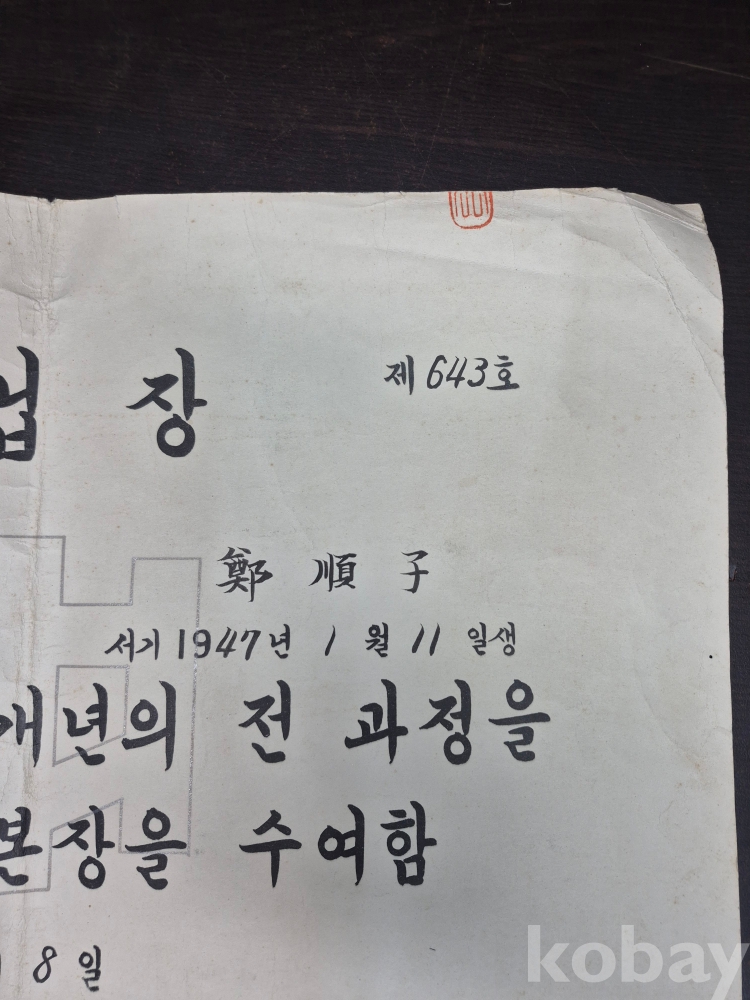 업 장
제 643호
鄭 順 子
서기 1947년 1 월 11 일생
개년의 전 과정을
본장을 수여함
8 일
kobay